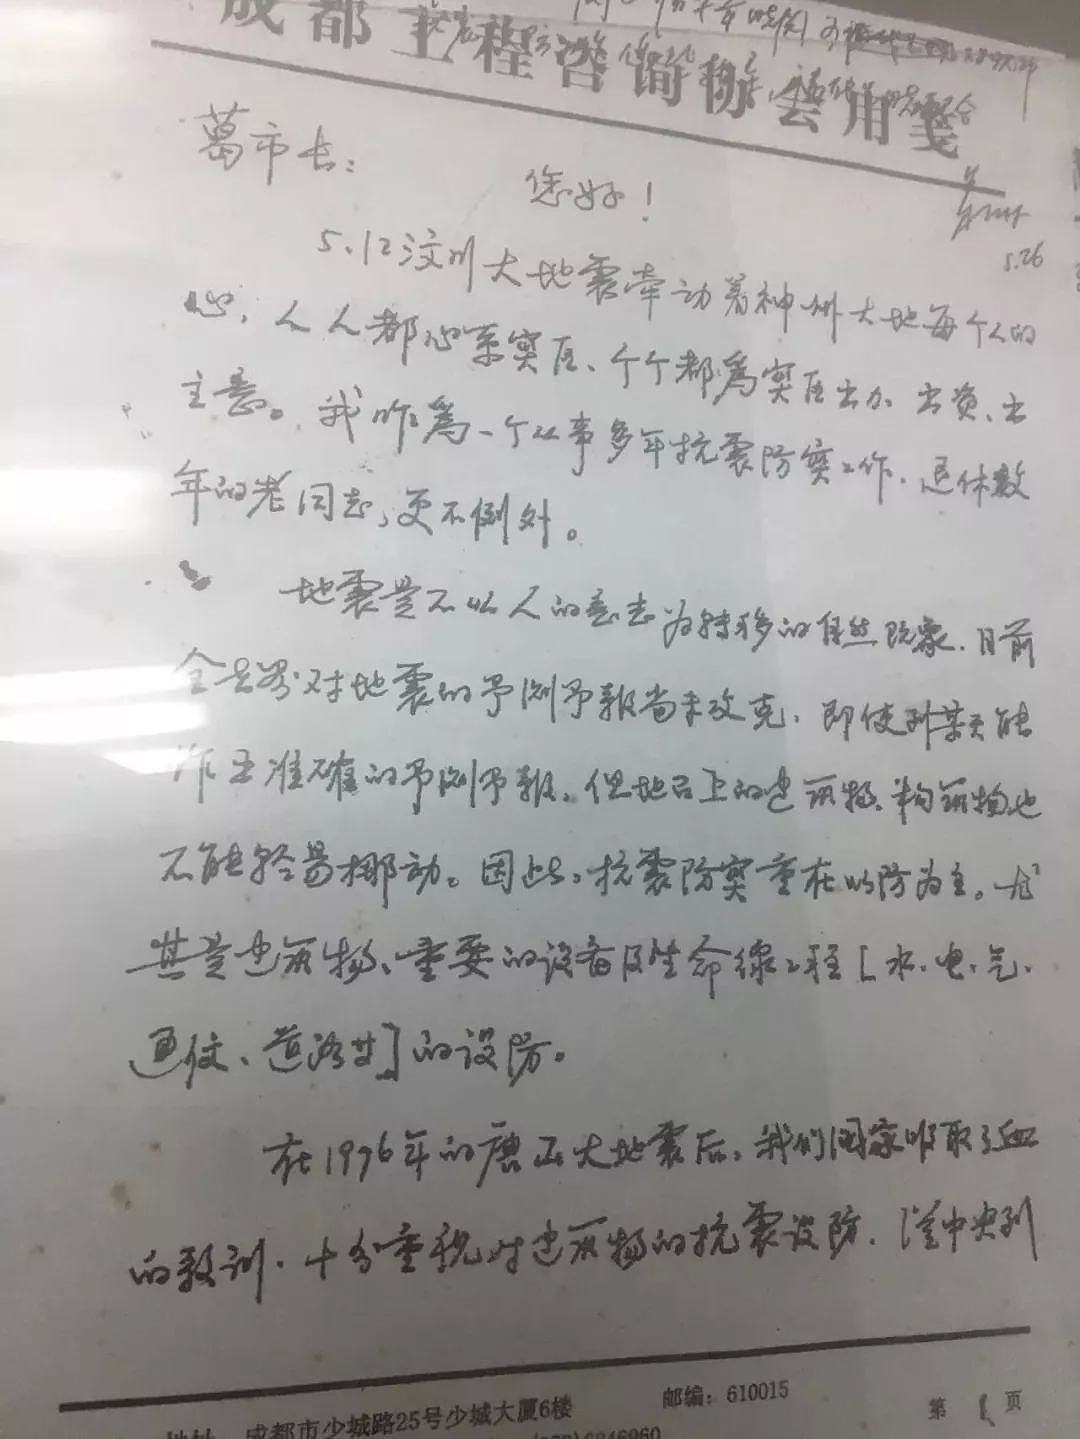 成都工程咨询协会用笺
5.26
葛市长：
您好！
5.12汶川大地震牵动着神州大地每个人的
心，人人都心系灾区、个个都为灾区出力、出资、出
主意。我作为一个从事多年抗震防灾工作、退休数
年的老同志，更不例外。
地震是不以人的意志为转移的自然现象，目前
全世界对地震的予测予报尚未攻克，即使到某天能
作出准确的予测予报，但地面上的建筑物、构筑物也
不能轻易挪动。因此，抗震防灾重在以防为主。尤
其是建筑物、重要的设备及生命线工程[水、电、气、
通信、道路等]的设防。
在1976年的唐山大地震后，我们国家吸取了血
的教训，十分重视对建筑物的抗震设防，从中央到
地址 成都市少城路25号少城大厦6楼
邮编：610015
第 1 页